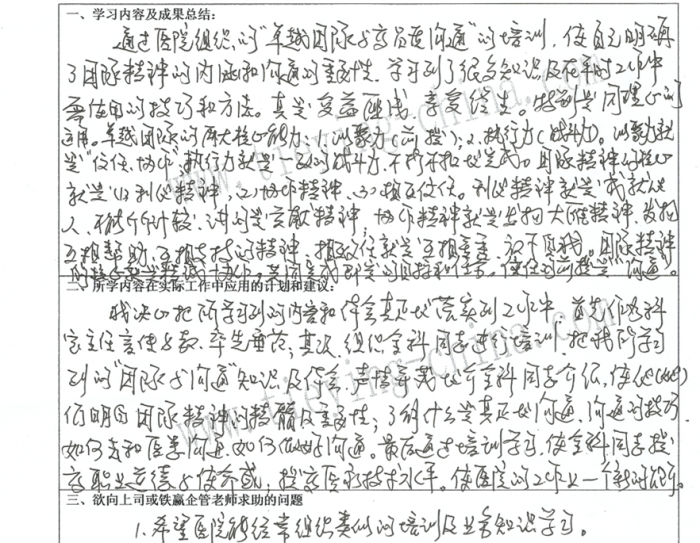 一、学习内容及成果总结:
通过医院组织的“卓越团队与高品质沟通”的培训,使自己明确
了团队精神的内涵和沟通的重要性,学习到了很多知识及在平时工作中
要使用的技巧和方法。真是受益匪浅,享受终生。特别是同理心的
运用。卓越团队的两大核心能力:1、凝聚力(前提);2、执行力(战斗力)。凝聚力就
是“信任、协作”,执行力就是一致的战斗力,不折不扣地完成。团队精神的核心
就是(1)利他精神,(2)协作精神,(3)相互信任。利他精神就是成就他
人,不能斤斤计较,讲的是贡献精神,协作精神就是发扬大雁精神,发扬
互相帮助、互相支持的精神,相互信任就是互相尊重,认下自我。团队精神
共同完成 的目标和任务。信任的前提是“沟通”。
二、所学内容在实际工作中应用的计划和建议:
我决心把所学习到的内容和体会真正地落实到工作中,首先作为科
室主任言传身教,率先垂范;其次,组织全科同志进行培训,把我所学习
到的“团队与沟通”知识及体会,声情并茂地介全科同志介绍,使他(她)
们明白团队精神的精髓及重要性;了解什么是真正地沟通,沟通的技巧,
如何去和医患沟通,如何做好沟通。最后通过培训学习,使全科同志提
高职业道德与使命感,提高医疗技术水平。使医院的工作上一个新的台阶。
三、欲向上司或铁赢企管老师求助的问题
1.希望医院能经常组织类似的培训及业务知识学习。
www.tieying-china.com
www.tieying-china.com